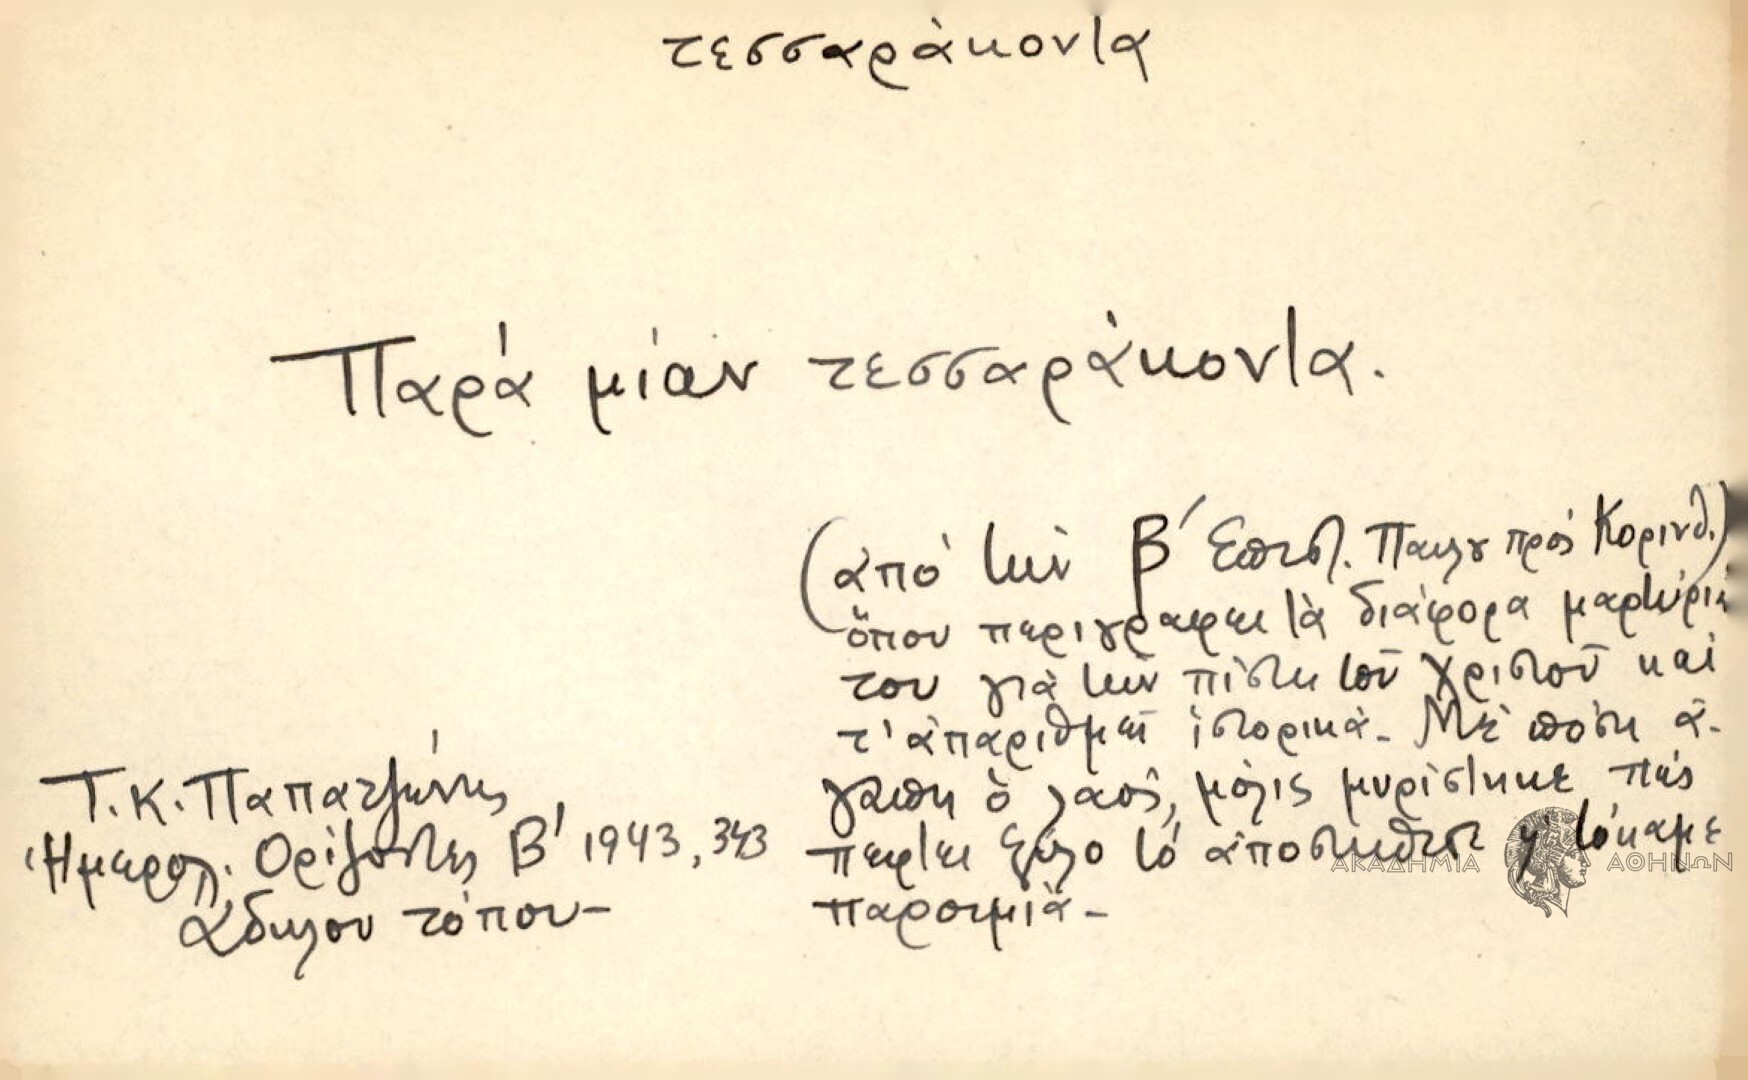 τεσσαράκοντα
Παρά μίαν τεσσαράκοντα.
(ἀπό τὴν Β΄ Ἐπιστ. Παύλου πρός Κορινθ.)
ὅπου περιγράφει τὰ διάφορα μαρτύρια
του γιὰ τὴν πίστη τοῦ Χριστοῦ καί
τ' ἀπαριθμεῖ ἱστορικά. Μὲ πόση ἀ-
γάπη ὁ λαός, μόλις μυρίστηκε πώς
πέφτει ξύλο τό ἀποστήθισε γι' τόκαμε
παροιμιά-
Τ.Κ. Παπατζώνης
Ἡμερολ. Ορίζοντες Β' 1943, 343
Ἀδήλου τόπου-
ΑΚΑΔΗΜΙΑ ΑΘΗΝΩΝ